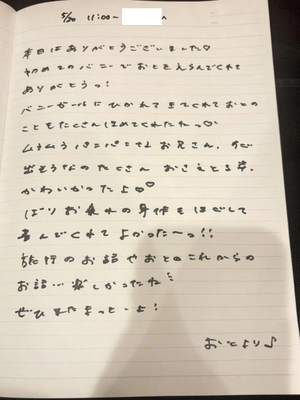 5/20 11:00~
本日はありがとうございました♡
初めてのバニーでおとをえらんでくれて
ありがとうっ!
バニーガールにひかれてきてくれておとの
こともたくさんほめてくれたねっ♡
ムラムラパンパンなお兄さん、
出そうなのたくさんおさえてる
かわいかったよ♡♡
ばりお疲れの身体をほぐして
喜んでくれてよかったーっ!!
旅行のお話やおとのこれからの
お話…楽しかったね
ぜひまたまっとーよ!
おとより♪